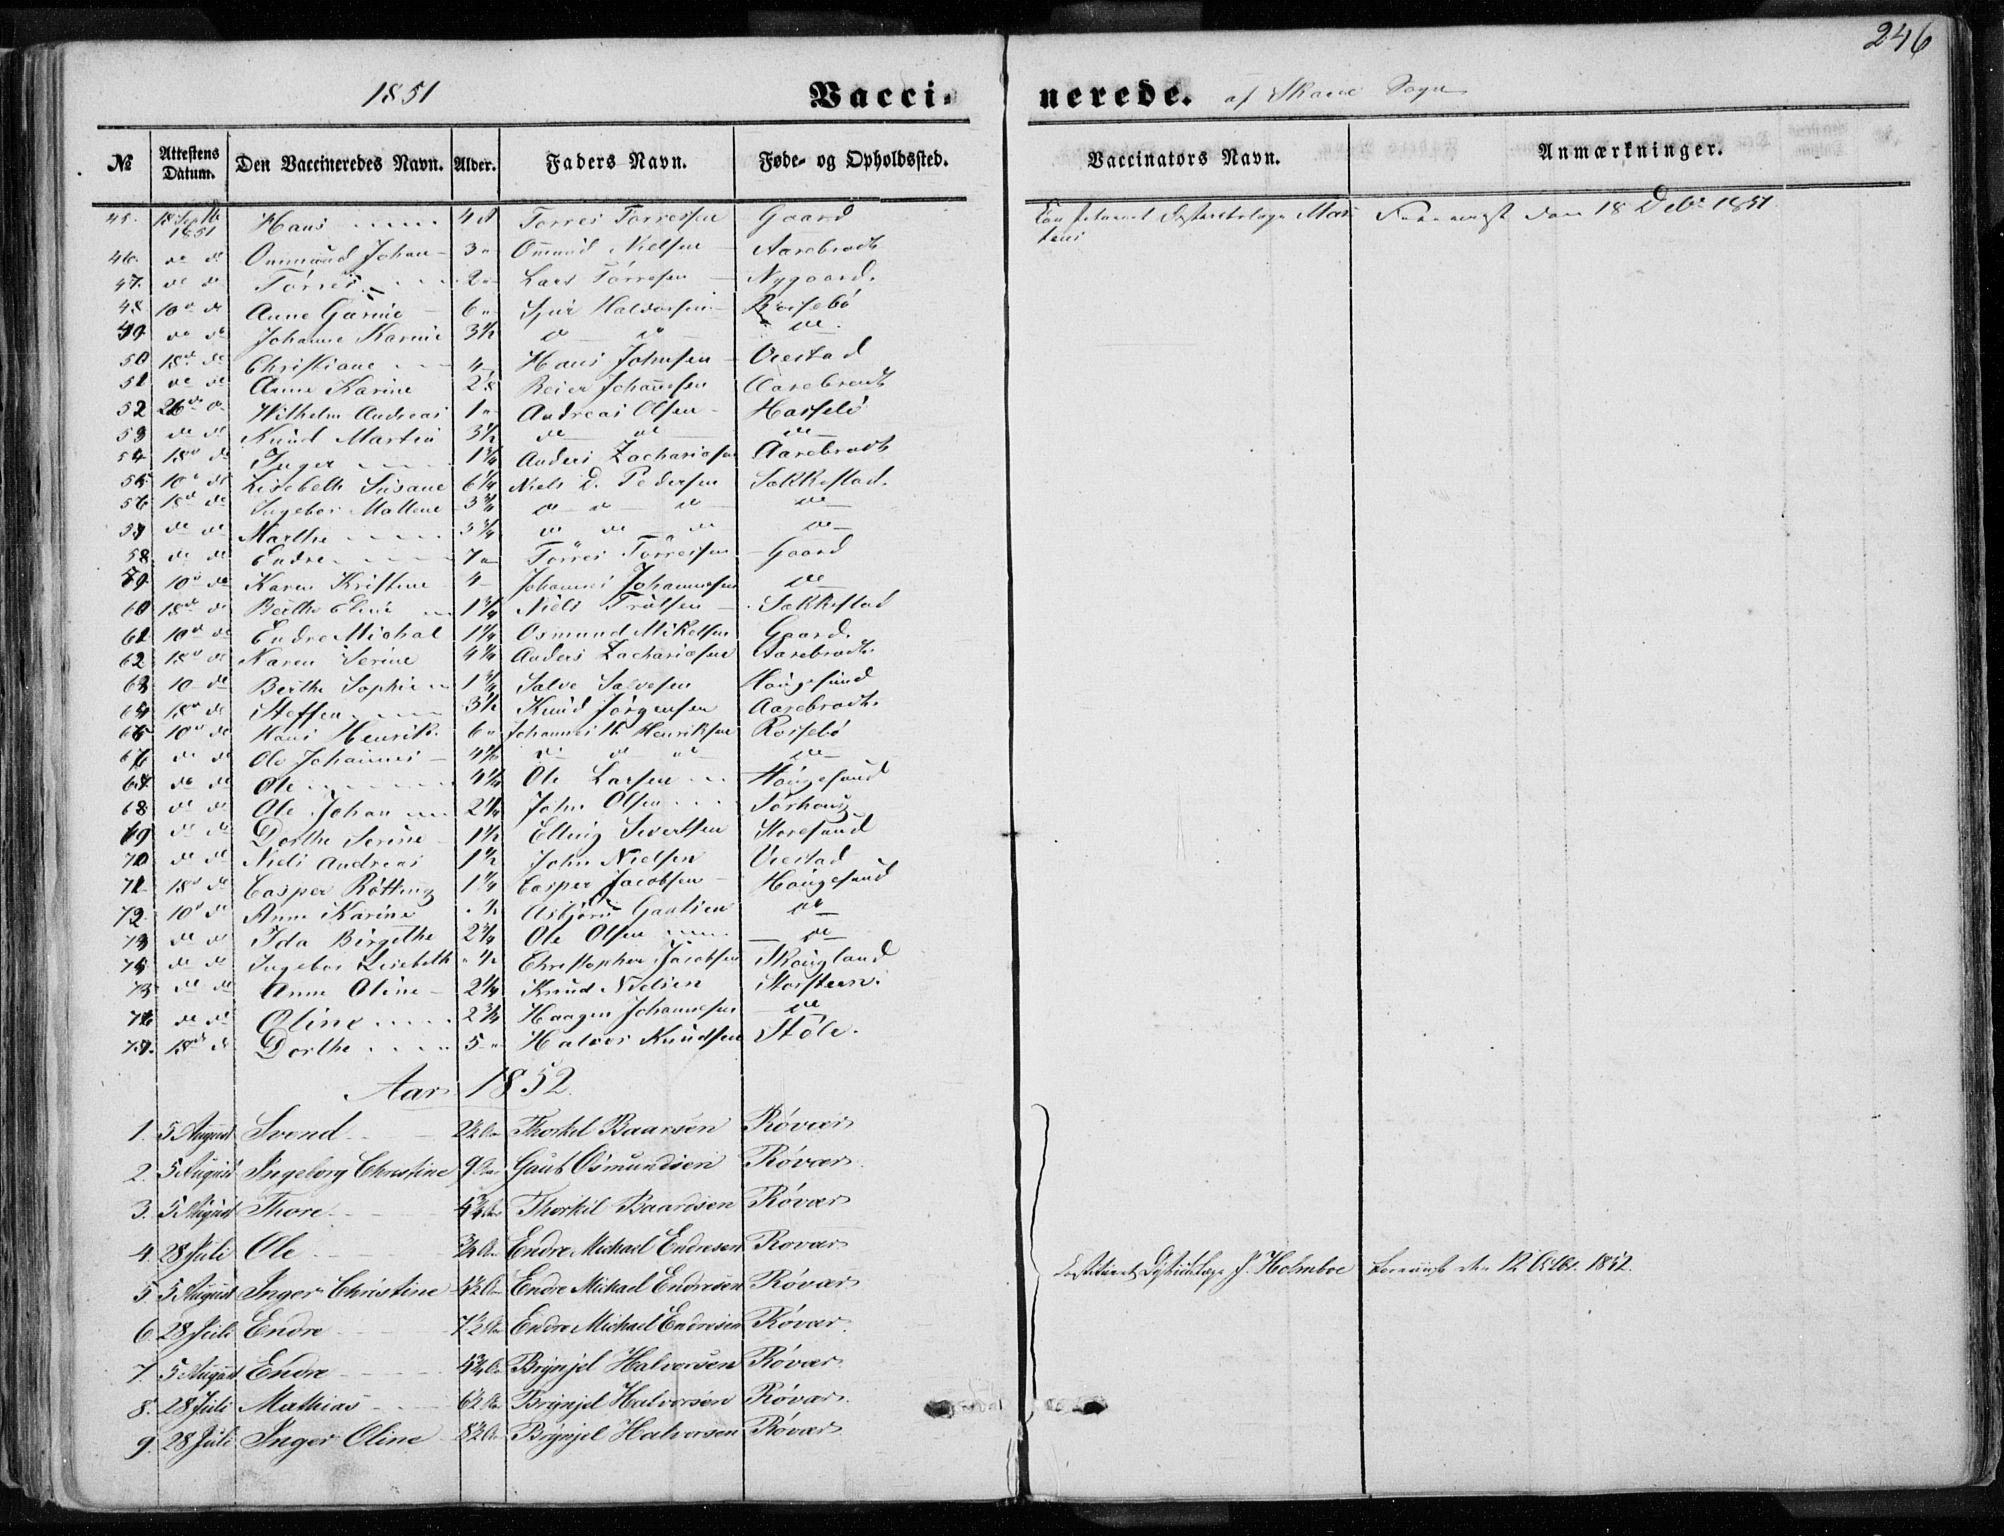 246
1851 Vacci- nerede. af Skaare Sogn
№ Attestens Datum. Den Vaccineredes Navn. Alder. Faders Navn. Føde- og Opholdssted. Vaccinators Navn. Anmærkninger.
45. 18 Septb 1851 Hans Torres Torressen Gaard den 18 Debr 1851
46. do do Ommund Johan 3 Ommund Nielsen Aarebrodt
47. do do Törres 2 Lars Törresen Nygaard.
48. 10 do Anne Gurine 6 Sjur Haldorsen Rossebö
49. do do Johanne Karine 3½ do do do
50 18 do Christiane 4 Hans Johnsen Vestad
51 do do Anne Karine Reier Johannesen Aarebrodt
52 26 do Wilhelm Andreas 1 Andreas Olsen Hasselö
53 do do Knud Martin 3½ do do do
54 18 do Inger 1¾ Anders Zachariasen Aarebrodt
55 10 do Lisebeth Susane 6¼ Niels D. Pedersen Sakkestad.
56 18 do Ingebor Mallene 3¾ do do do do
57 do do Marthe 3¾ do do do do
58 do do Endre 7 Törres Törressen Gaard
59 10 do Karen Kristine 4 Johannes Johannesen do
60 18 do Berthe Eline 1¾ Niels Trulsen Sakkestad
61 10 do Endre Michal 1¼ Osmund Mikelsen Gaard.
62 18 do Karen Serine 4¼ Anders Zachariasen Aarebrodt.
63 10 do Berthe Sophie 1¾ Salve Salvesen Haugesund
64 18 do Steffen 3½ Knud Jörgensen Aarebrodt.
65 10 do Hans Henrik 6 Johannes H. Henriksen Rossebö
66 do do Ole Johannes do do do do
67 do do Ole 4¼ Ole Larsen Haugesund
68 do do Ole Johan 2¼ John Olsen Sörhaug
69 do do Dorthe Serine 1½ Elling Sivertsen Storesund
70 do do Niels Andreas 1½ John Nielsen Vestad
71 18 do Casper Rötting 1¼ Casper Jacobsen Haugesund
72. 10 do Anne Karine ½ Asbjörn do
73 do do Ida Birgithe 2¾ Ole Olsen do
74 do do Ingebor Lisebeth ½ Christopher Jacobsen Skougland
75 do do Anne Oline 2¼ Knud Nielsen
76 do do Oline 2¾ Haagen Johannesen do
77. 18 do Dorthe 5 Halvor Knudsen Stöle.
Aar 1852.
1. 5 August Svend 2½ Aar Thorkel Baarsen Røvær
2. 5 August Ingeborg Christine 9 Aar Gaut Osmundsen Røvær
3. 5 August Thore Thorkil Baardsen Røvær
4. 28 Juli Ole ¾ Aar Endre Michael Endresen Røvær Constitueret Districtslæge J. Holmboe Forevist den 12 Octbr. 1852.
5 5 August Inger Christine 4½ Aar Endre Mickael Endresen Røvær
6. 28 Juli Endre 7½ Aar Endre Michael Endresen Røvær.
7. 5 August Endre Brynjel Halvorsen Røvær
8. 28 Juli Mathias 6½ Aar Brynjel Halvorsen Røvær.
9. 28 Juli Inger Oline 8½ Aar Brynjel Halvorsen Røvær